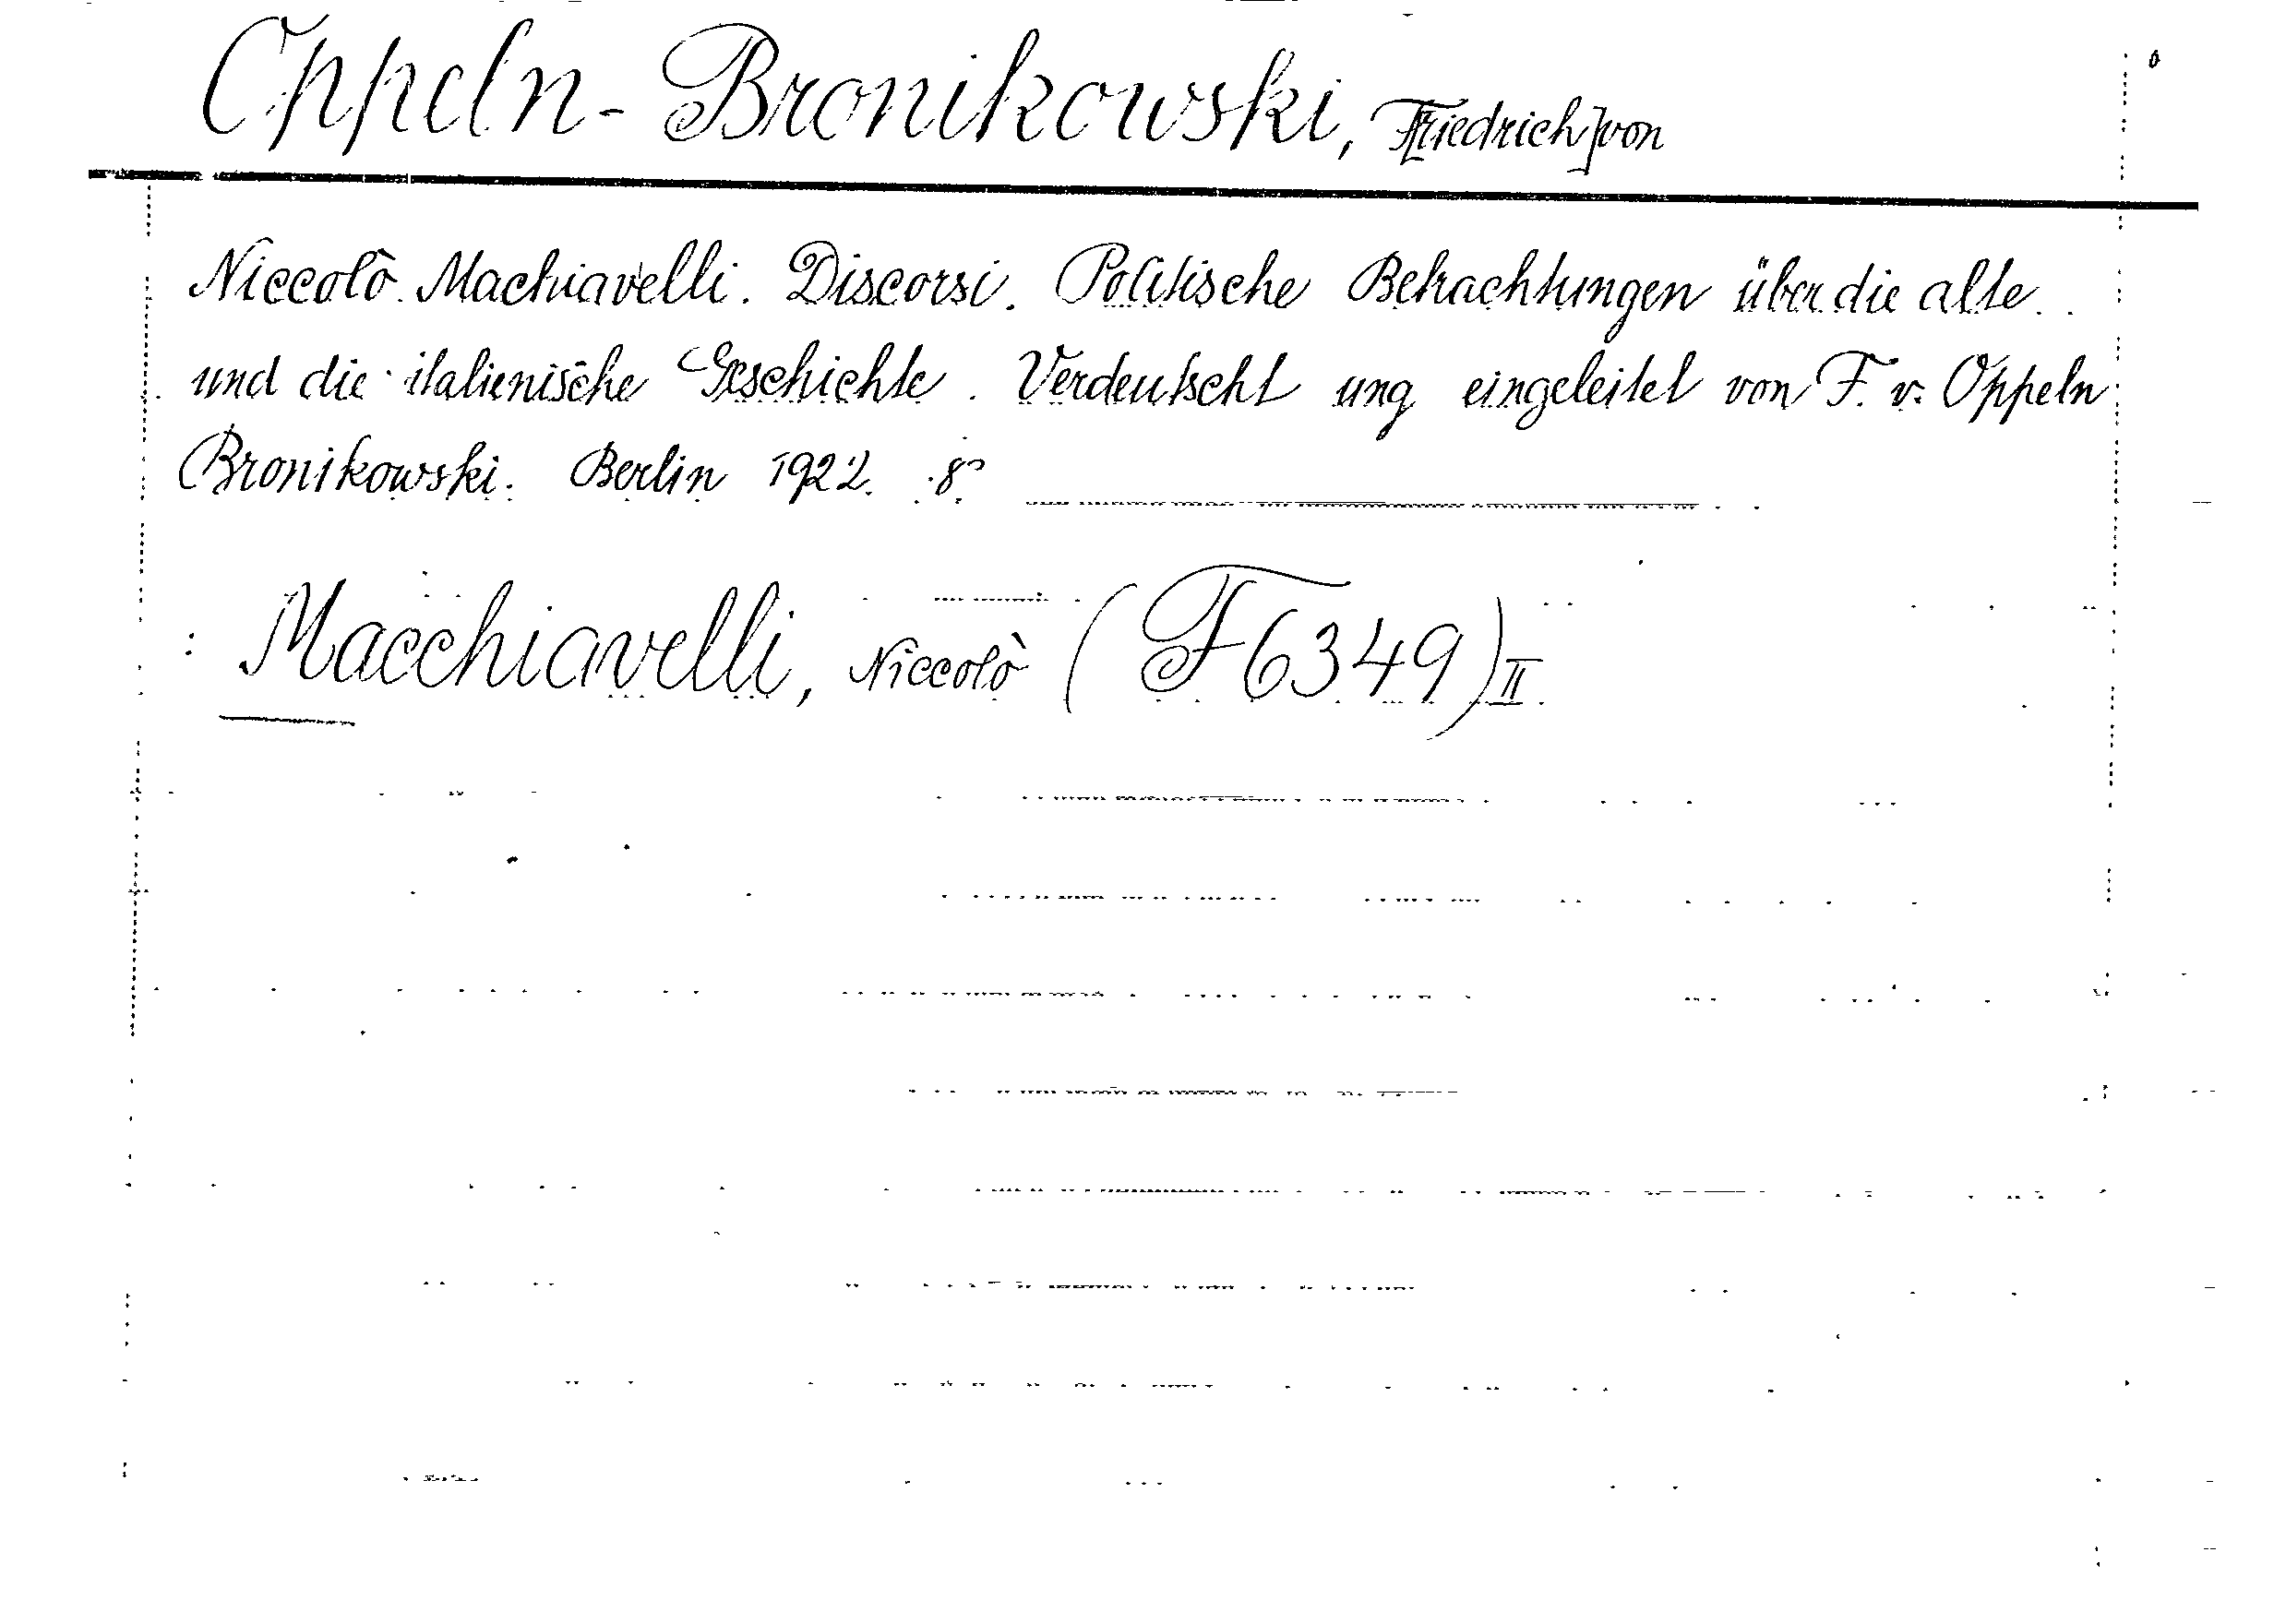 Oppeln-Bronikowski, F[riedrich] von
Niccolò Machiavelli. Discorsi. Politische Betrachtungen über die alte
und die italienische Geschichte. Verdeutscht ung eingeleitet von F. v. Oppeln
Bronikowski. Berlin 1922. 8°
: Macchiavelli, Niccolò (F6349) II